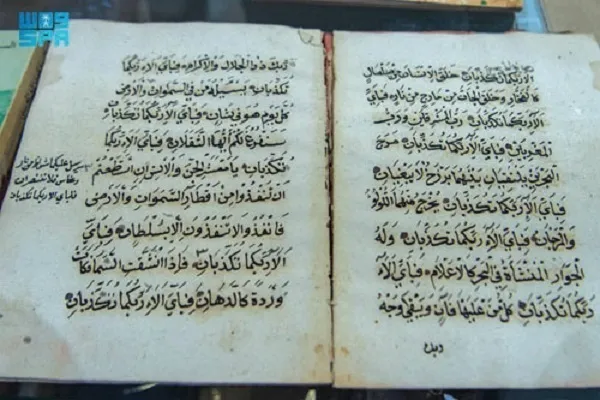 واس
SPA
الاء ربكما تكذبان خلق الانسان من صلصال
كالفخار وخلق الجان من مارج من نار فباي
الاء ربكما تكذبان رب المشرقين ورب
المغربين فباي الاء ربكما تكذبان مرج
البحرين يلتقيان بينهما برزخ لا يبغيان
فباي الاء ربكما تكذبان يخرج منهما اللؤلؤ
والمرجان فباي الاء ربكما تكذبان وله
الجوار المنشاة في البحر كالاعلام فباي الاء
ربكما تكذبان كل من عليها فان ويبقى وجه
ربك
ربك ذو الجلال والاكرام فباي الاء ربكما
تكذبان يسئله من في السموات والارض
كل يوم هو في شان فباي الاء ربكما تكذبان
سنفرغ لكم ايها الثقلان فباي الاء ربكما
تكذبان يا معشر الجن والانس ان استطعتم
ان تنفذوا من اقطار السموات والارض
فانفذوا لا تنفذون الا بسلطان فباي
الاء ربكما تكذبان فاذا انشقت السماء فكانت
وردة كالدهان فباي الاء ربكما تكذبان
يرسل عليكما شواظ من نار
ونحاس فلا تنتصران
فباي الاء ربكما تكذبان